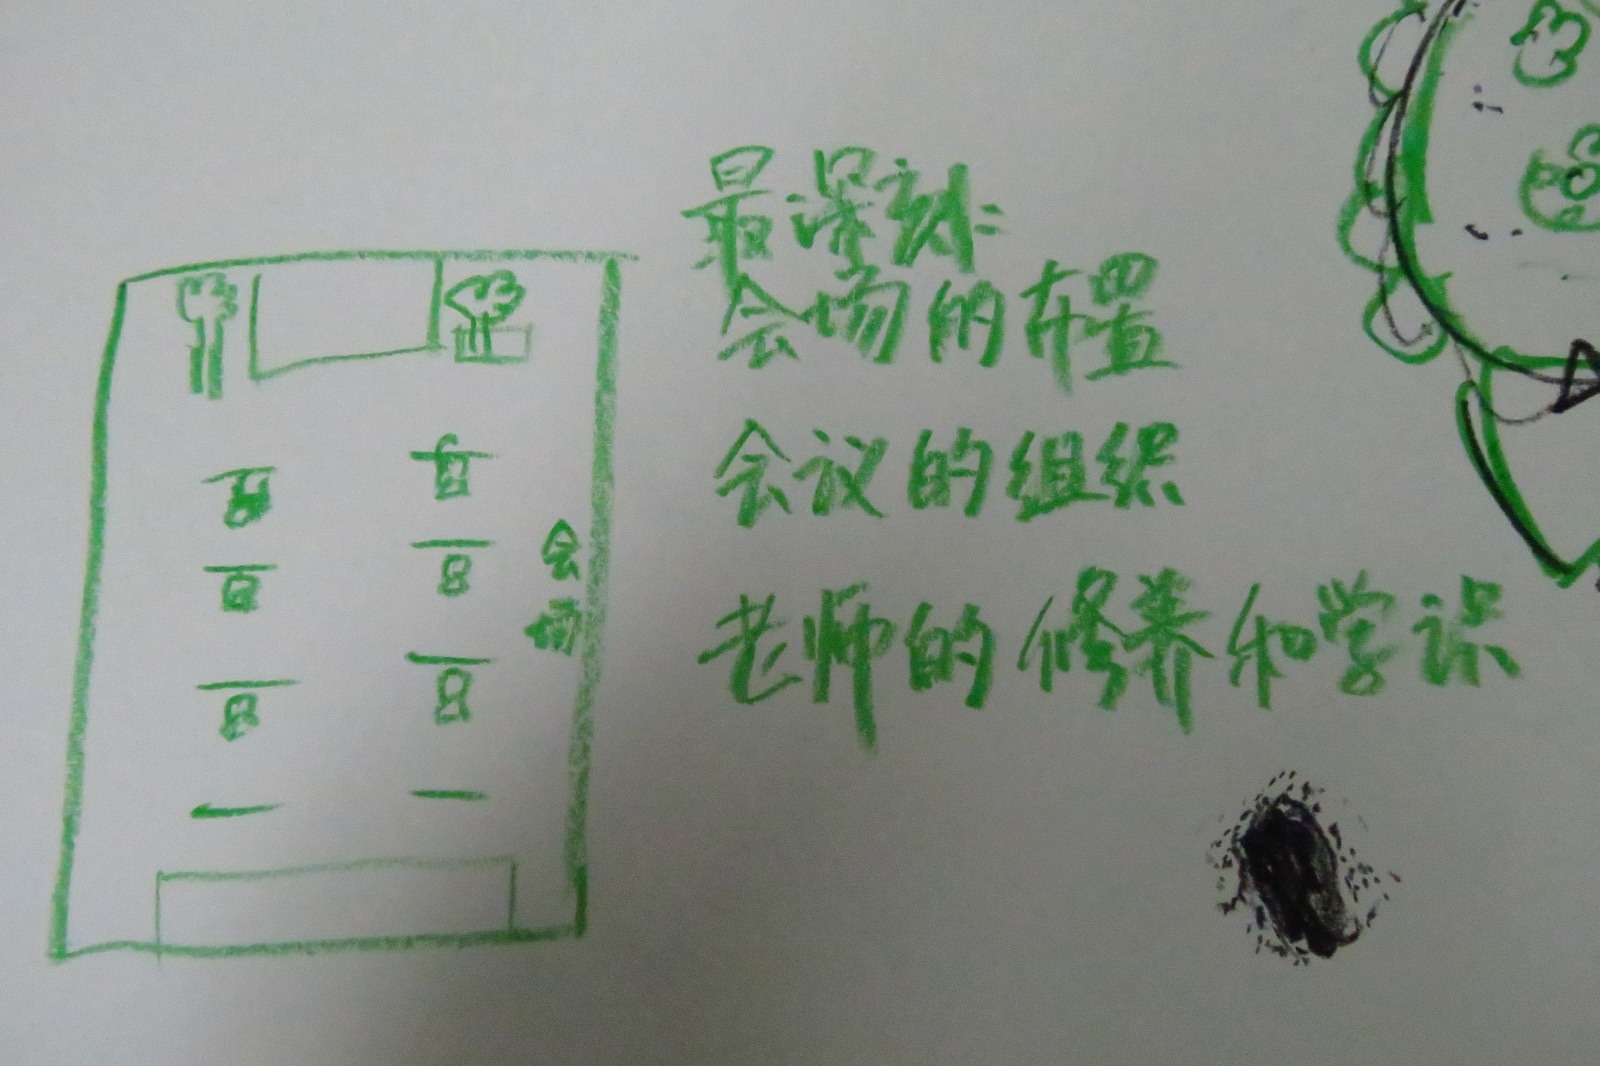 最深刻:
会场的布置
会议的组织
老师的修养和学识
会场